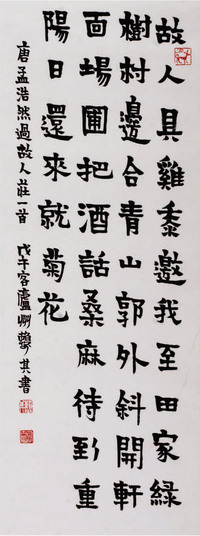 故人具雞黍邀我至田家綠
樹村邊合青山郭外斜開軒
面場圃把酒話桑麻待到重
陽日還來就菊花
唐孟浩然過故人莊一首 戊午客廬州其書